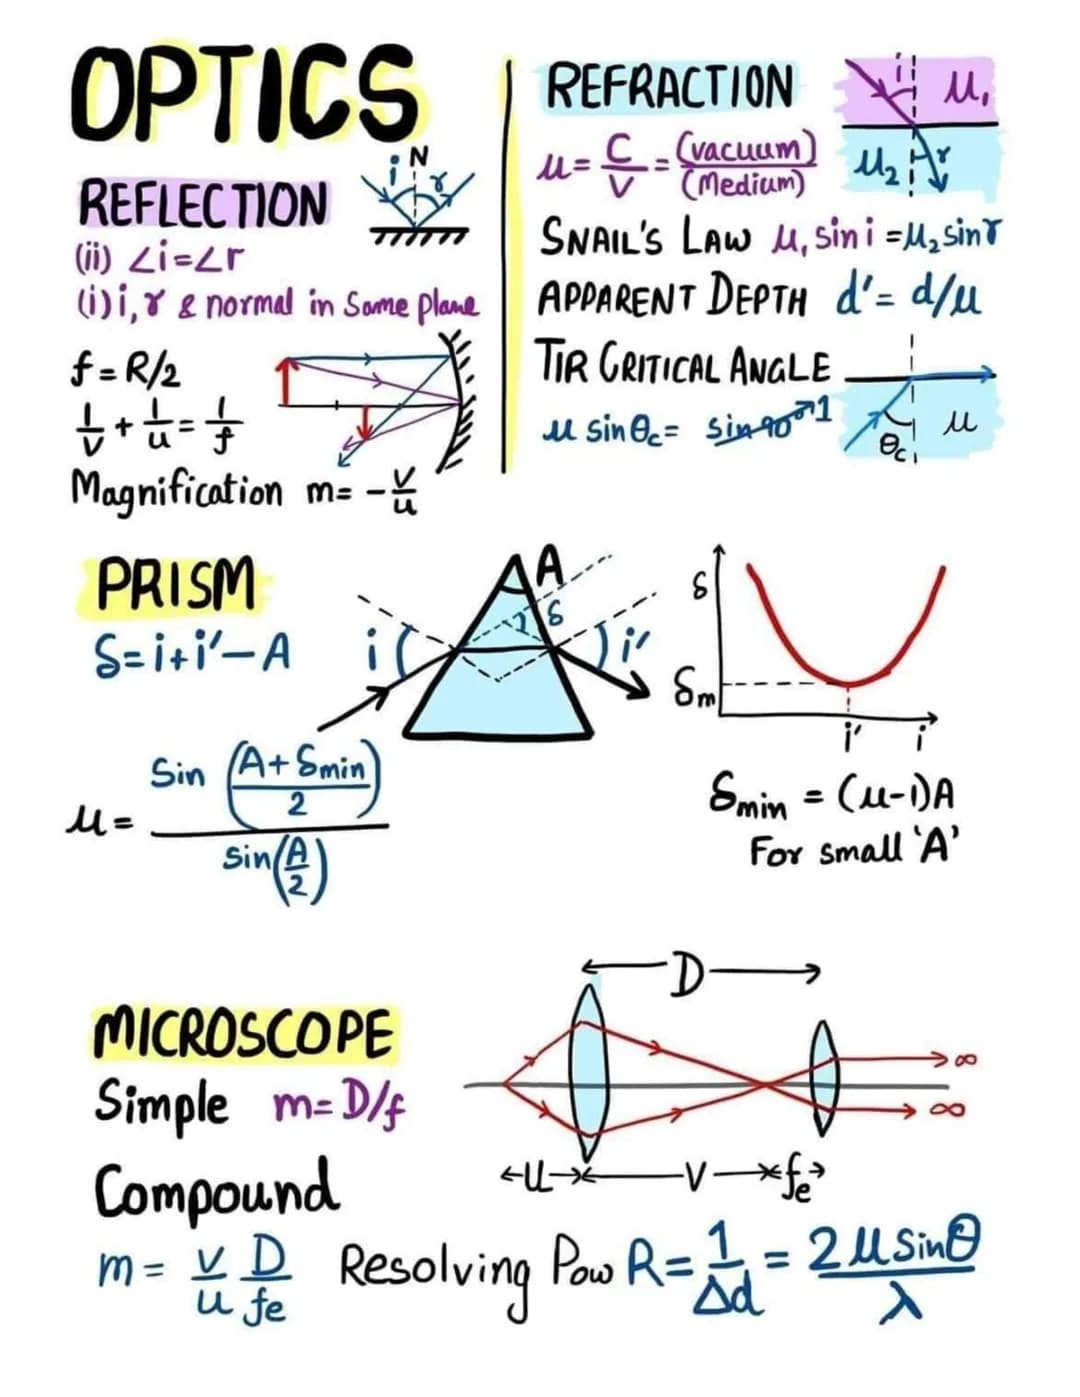 OPTICS
REFLECTION
i N r
(ii) ∠i=∠r
(i) i, r & normal in Same plane
f = R/2
1/v + 1/u = 1/f
Magnification m= -v/u
REFRACTION
i μ₁
μ₂ r
μ = C/V = (vacuum)/(Medium)
SNAIL'S LAW μ₁ sin i = μ₂ sin r
APPARENT DEPTH d' = d/μ
TIR CRITICAL ANGLE
μ sin θc = sin 90° 1
θc μ
PRISM
δ = i + i' − A
A
δ
i i'
δ
δm
i' i
μ = Sin (A + δmin / 2) / sin (A/2)
δmin = (μ-1)A
For small 'A'
MICROSCOPE
D
∞
∞
U V fe
Simple m= D/f
Compound
m = v/u D/fe Resolving Pow R = 1/Δd = 2 μ sin θ / λ